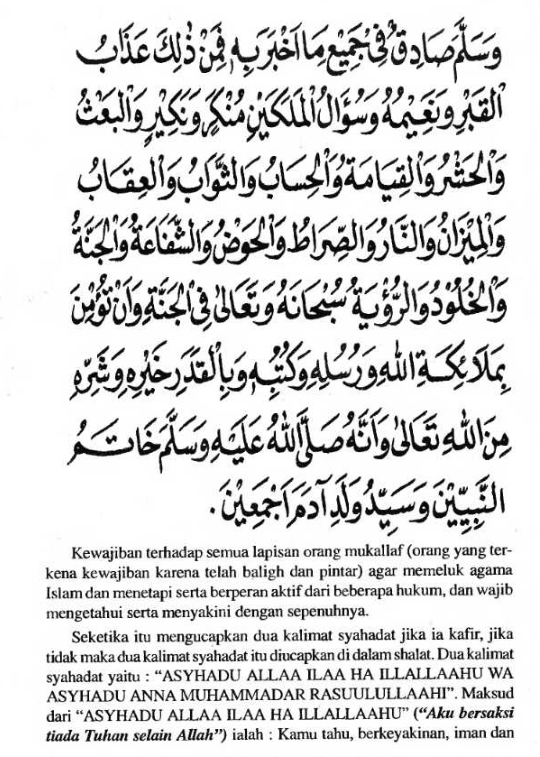 وَسَلَّمَ صَادِقٌ فِيْ جَمِيْعِ مَا اَخْبَرَ بِهِ فَمِنْ ذٰلِكَ عَذَابُ
الْقَبْرِ وَنَعِيْمُهُ وَسُؤَالُ الْمَلَكَيْنِ مُنْكَرٍ وَنَكِيْرٍ وَالْبَعْثُ
وَالْحَشْرُ وَالْقِيَامَةُ وَالْحِسَابُ وَالثَّوَابُ وَالْعِقَابُ
وَالْمِيْزَانُ وَالنَّارُ وَالصِّرَاطُ وَالْحَوْضُ وَالشَّفَاعَةُ وَالْجَنَّةُ
وَالْخُلُوْدُ وَالرُّؤْيَةُ سُبْحَانَهُ وَتَعَالٰى فِى الْجَنَّةِ وَاَنْ تُؤْمِنَ
بِمَلَائِكَةِ اللهِ وَرُسُلِهِ وَكُتُبِهِ وَبِالْقَدَرِ خَيْرِهِ وَشَرِّهِ
مِنَ اللهِ تَعَالٰى وَاَنَّهُ صَلَّى اللهُ عَلَيْهِ وَسَلَّمَ خَاتَمُ
النَّبِيِّيْنَ وَسَيِّدُ وَلَدِ آدَمَ اَجْمَعِيْنَ .
Kewajiban terhadap semua lapisan orang mukallaf (orang yang ter-
kena kewajiban karena telah baligh dan pintar) agar memeluk agama
Islam dan menetapi serta berperan aktif dari beberapa hukum, dan wajib
mengetahui serta menyakini dengan sepenuhnya.
Seketika itu mengucapkan dua kalimat syahadat jika ia kafir, jika
tidak maka dua kalimat syahadat itu diucapkan di dalam shalat. Dua kalimat
syahadat yaitu : “ASYHADU ALLAA ILAA HA ILLALLAAHU WA
ASYHADU ANNA MUHAMMADAR RASUULULLAAHI”. Maksud
dari “ASYHADU ALLAA ILAA HA ILLALLAAHU” (“Aku bersaksi
tiada Tuhan selain Allah”) ialah : Kamu tahu, berkeyakinan, iman dan